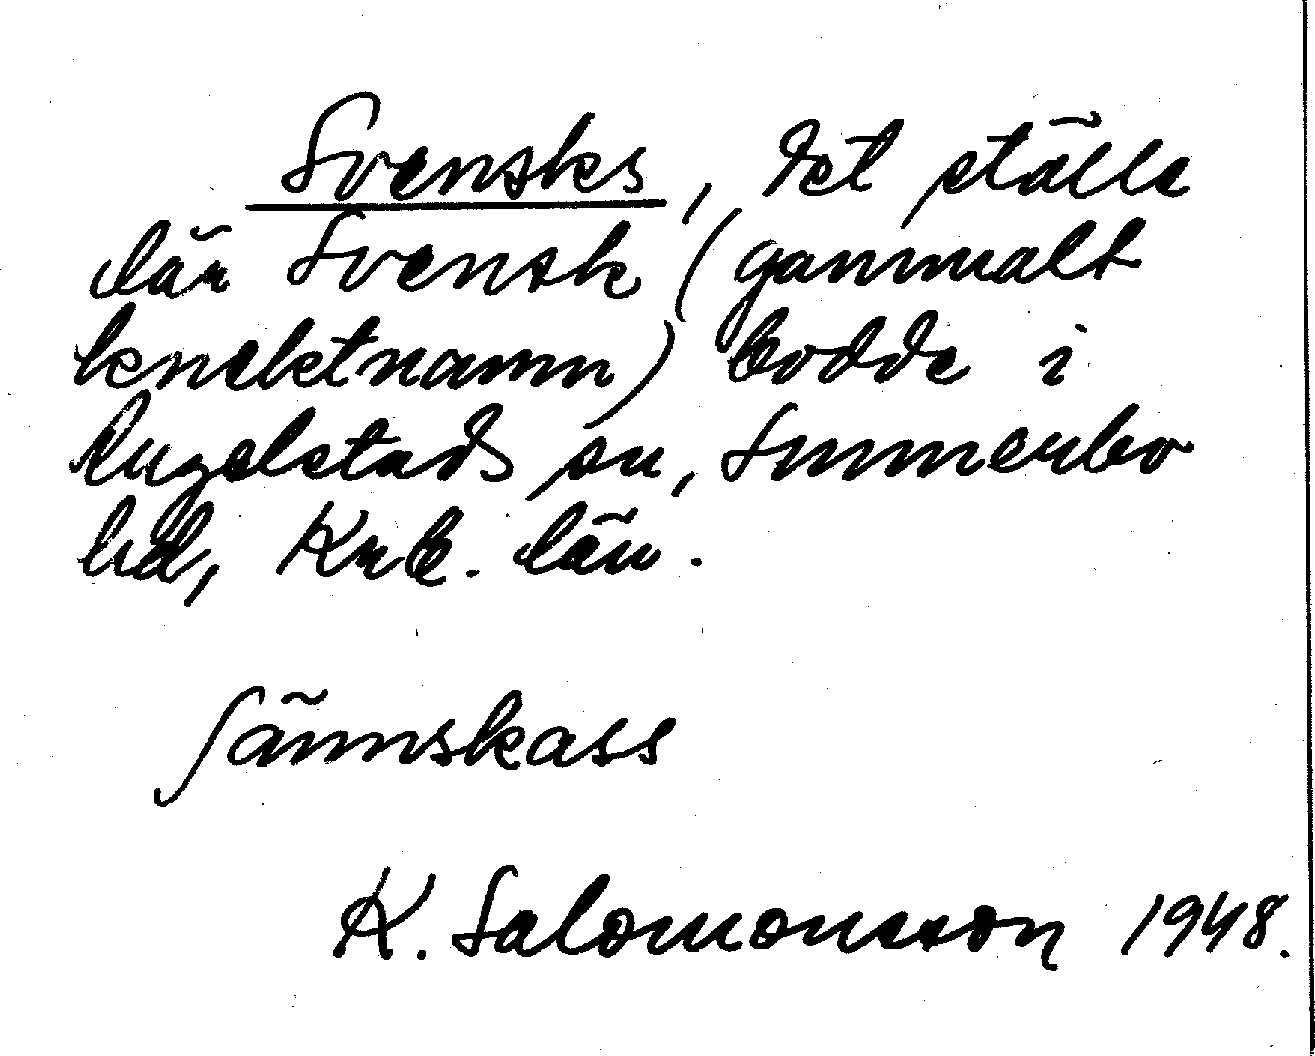 Svensks, det ställe
där Svensk (gammalt
knektnamn) bodde i
Ringestads sn, Sunnerbo
hd, Krb. län.
Sännskass
K. Salomonsson 1948.